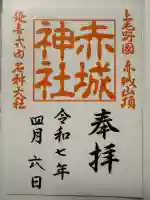 上毛野國 赤城山頂
奉拝
赤城
神社
令和七年
四月六日
延喜式内名神大社